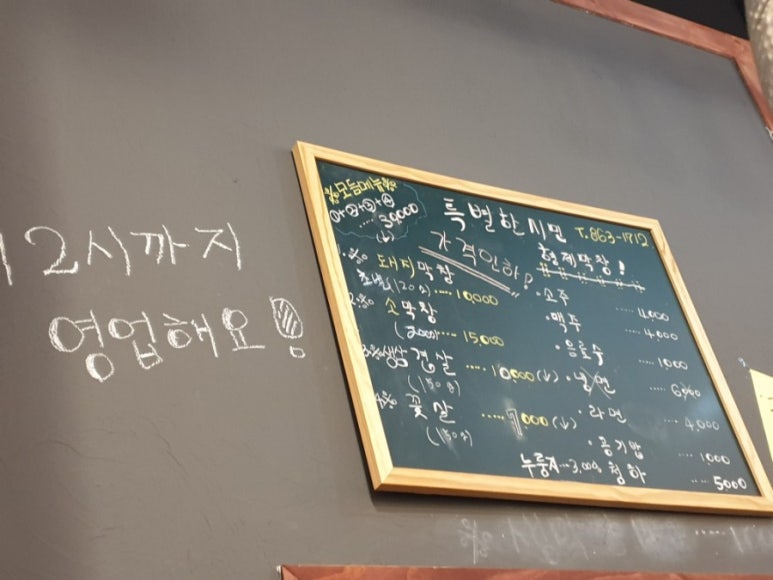 12시까지
영업해요!
모듬메뉴
①+②+③+④
.... 39,000
(↓)
특별한시민 T.863-1712
가격인하! 형제막창!
1. 돼지막창
(120g) .... 10,000
2. 소막창
(200g) .... 15,000
3. 생삼겹살
(150g) .... 10,000 (↓)
4. 꽃살
(150g) ..... 9000 (↓)
·소주 4,000
·맥주 .... 4,000
·음료수 .... 1,000
·냉면 .... 6,000
·라면 .... 4,000
·공기밥 .... 1,000
누룽지...3,000
청하 .... 5000